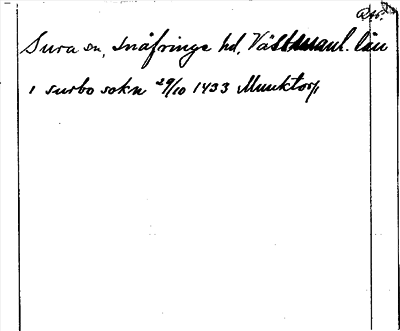 Sura sn, Snäfringe hd, Västmanl. län
i surbo sokn 29/10 1433 Munktorp